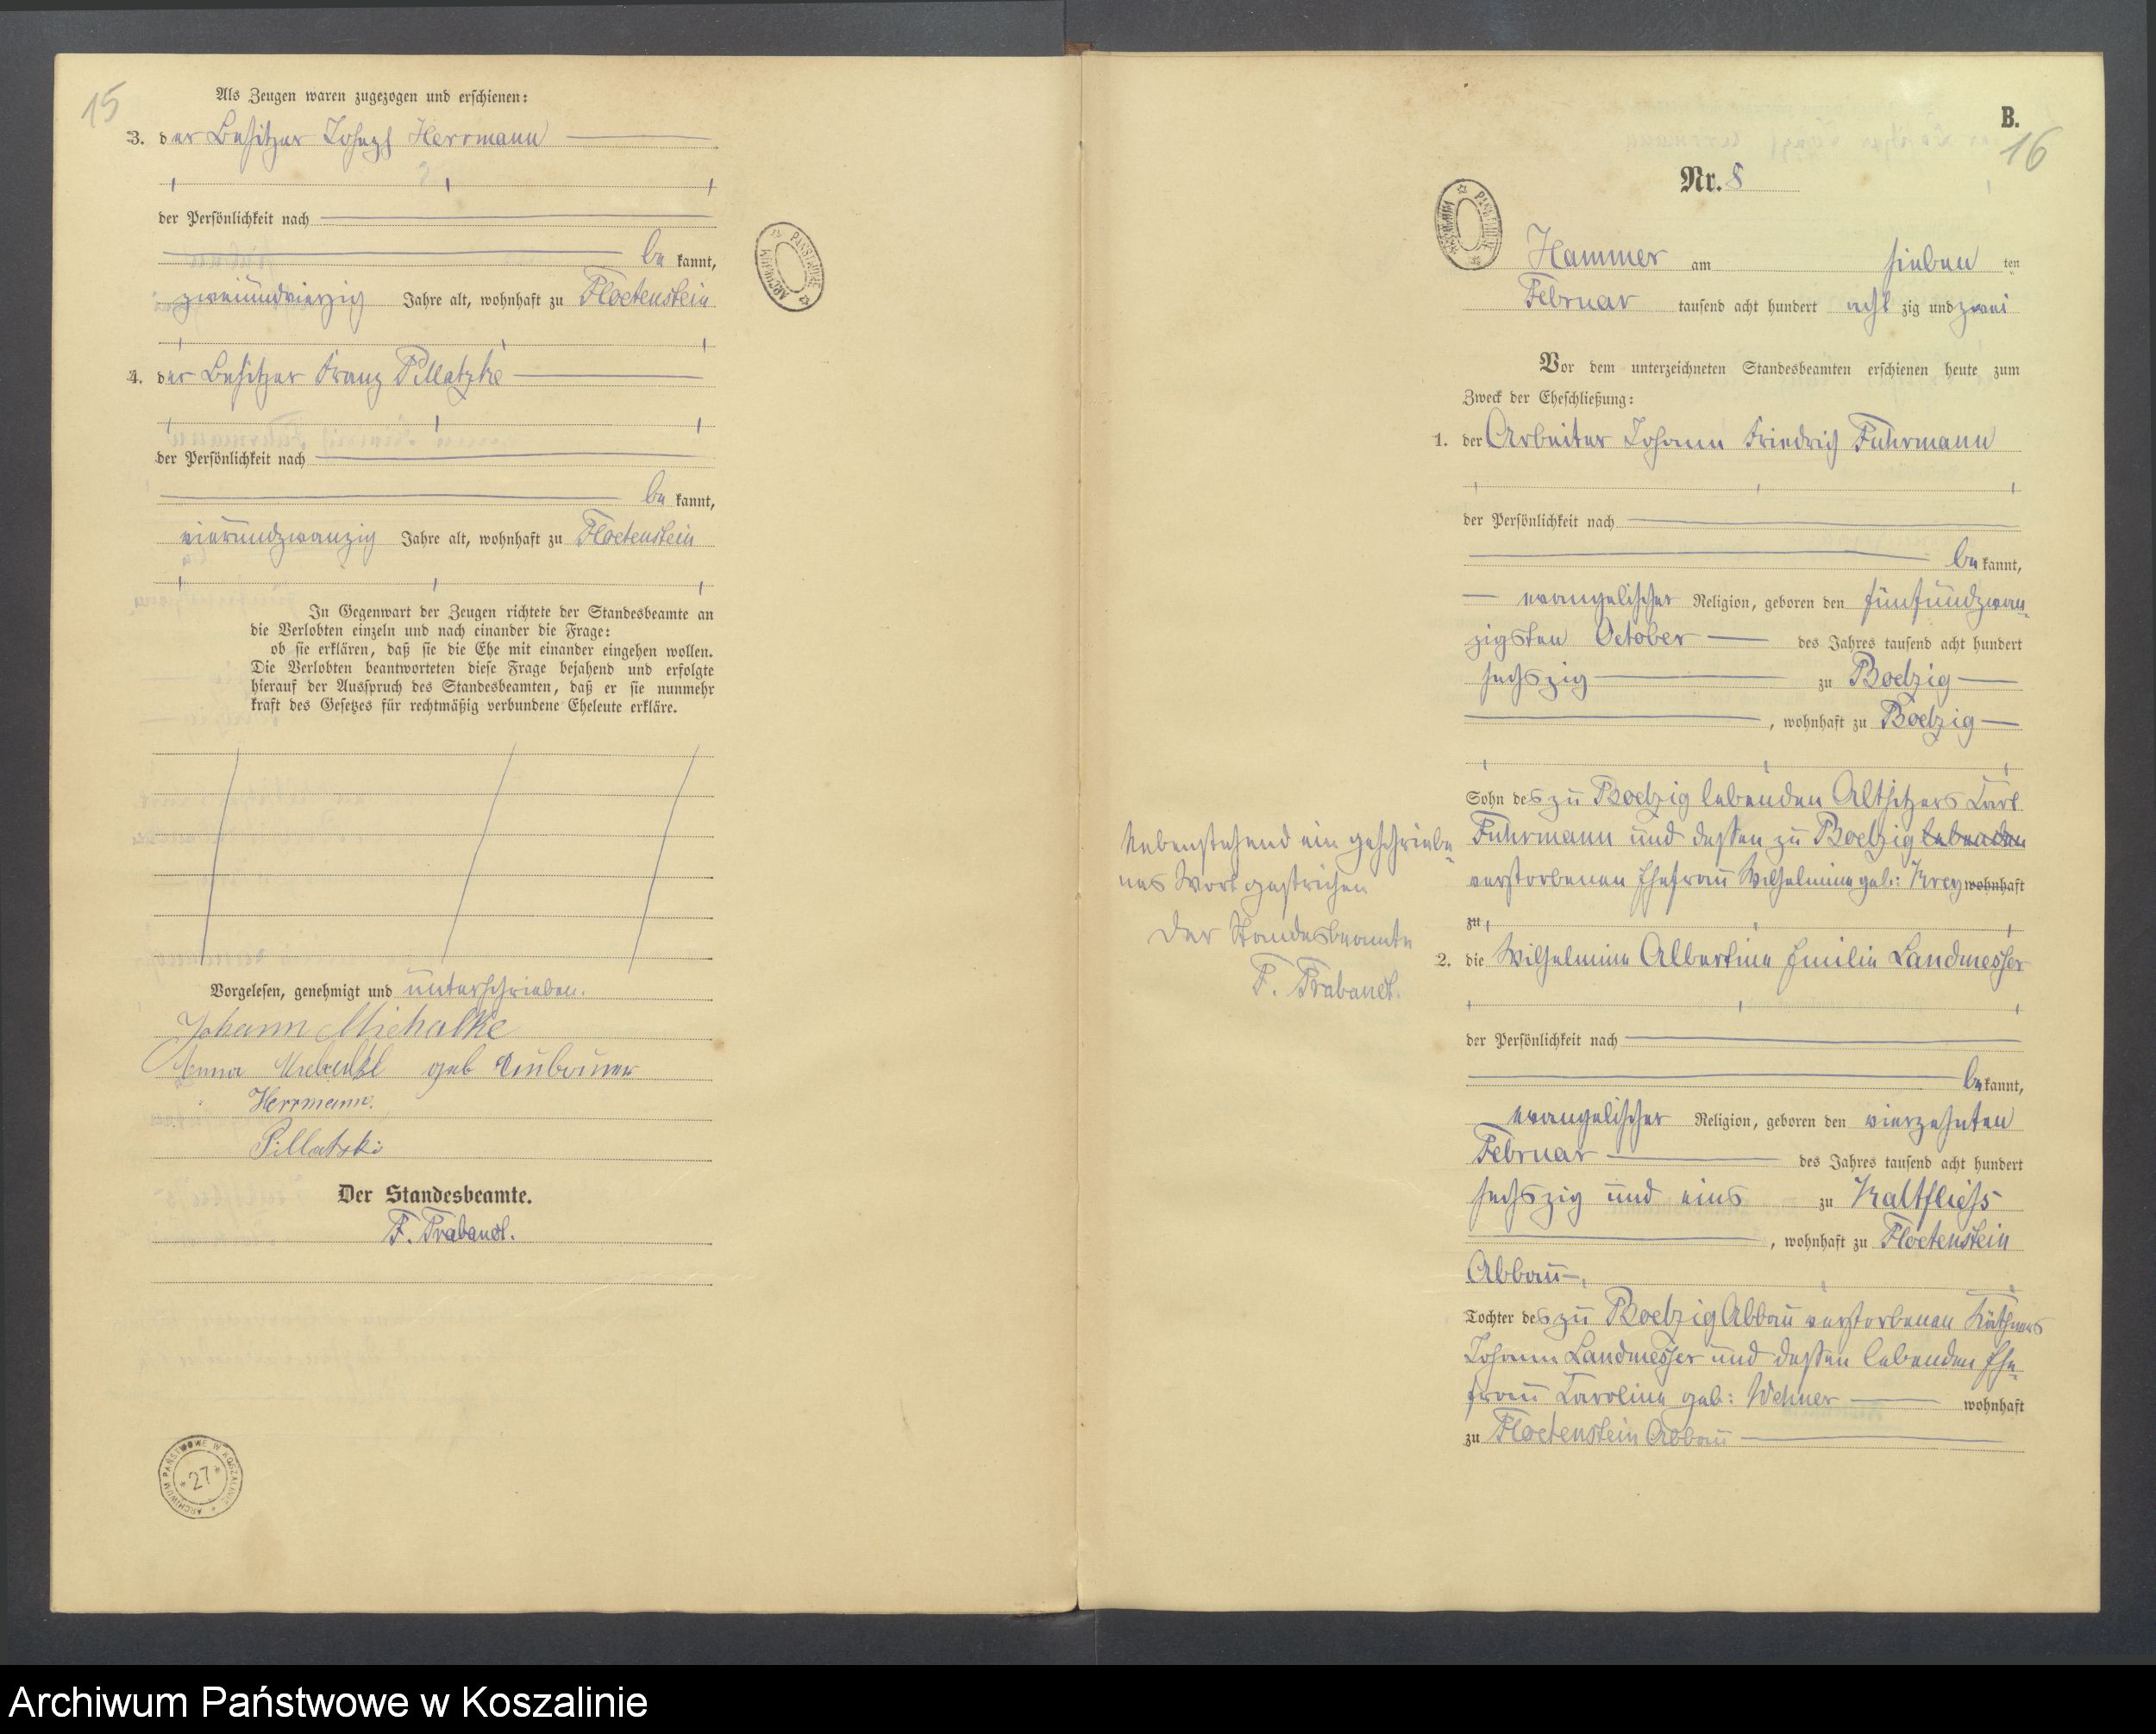 15
Als Zeugen waren zugezogen und erschienen:
3. der Besitzer Joseph Herrmann
der Persönlichkeit nach
be kannt,
zweiundvierzig Jahre alt, wohnhaft zu Floetenstein
4. der Besitzer Franz Pillatzke
der Persönlichkeit nach
be kannt,
vierundzwanzig Jahre alt, wohnhaft zu Floetenstein
In Gegenwart der Zeugen richtete der Standesbeamte an
die Verlobten einzeln und nach einander die Frage:
ob sie erklären, daß sie die Ehe mit einander eingehen wollen.
Die Verlobten beantworteten diese Frage bejahend und erfolgte
hierauf der Ausspruch des Standesbeamten, daß er sie nunmehr
kraft des Gesetzes für rechtmäßig verbundene Eheleute erkläre.
Vorgelesen, genehmigt und unterschrieben.
Johann Michalke
Anna geb
Herrmann.
Pillatzki
Der Standesbeamte.
F. Trabandt.
ARCHIWUM PAŃSTWOWE W KOSZALINIE
27
ARCHIWUM PAŃSTWOWE
B.
16
Nr. 8
ARCHIWUM PAŃSTWOWE
Hammer am sieben ten
Februar tausend acht hundert acht zig und zwei
Vor dem unterzeichneten Standesbeamten erschienen heute zum
Zweck der Eheschließung:
1. der Arbeiter Johann Friedrich Fuhrmann
der Persönlichkeit nach
be kannt,
evangelischer Religion, geboren den fünfundzwan-
zigsten October des Jahres tausend acht hundert
sechszig zu Boelzig
, wohnhaft zu Boelzig
Sohn des zu Boelzig lebenden Altsitzers Carl
Fuhrmann und dessen zu Boelzig lebenden
verstorbenen Ehefrau Wilhelmine geb: Krey wohnhaft
zu
Nebenstehend ein geschriebe-
nes Wort gestrichen
Der Standesbeamte
F. Trabandt.
2. die Wilhelmine Albertine Emilie Landmesser
der Persönlichkeit nach
be kannt,
evangelischer Religion, geboren den vierzehnten
Februar des Jahres tausend acht hundert
sechszig und eins zu Kaltfliess
, wohnhaft zu Floetenstein
Abbau
Tochter des zu Boelzig Abbau verstorbenen Käthners
Johann Landmesser und dessen lebenden Ehe-
frau Caroline geb: Wehner wohnhaft
zu Floetenstein Abbau
Archiwum Państwowe w Koszalinie